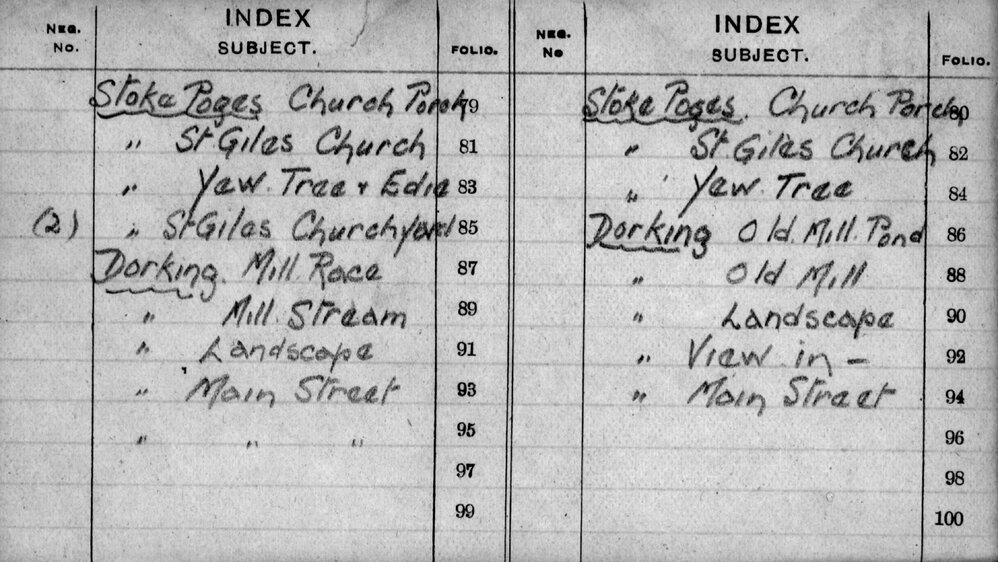 NEG. No. INDEX SUBJECT. FOLIO.
Stoke Poges Church Porch 79
" St Giles Church 81
" Yew Tree + Edie 83
(2) " St Giles Churchyard 85
Dorking. Mill Race 87
" Mill Stream 89
" Landscape 91
" Main Street 93
" " " 95
97
99
NEG. No INDEX SUBJECT. FOLIO.
Stoke Poges. Church Porch 80
" St Giles Church 82
" Yew Tree 84
Dorking Old Mill Pond 86
" Old Mill 88
" Landscape 90
" View in – 92
" Main Street 94
96
98
100